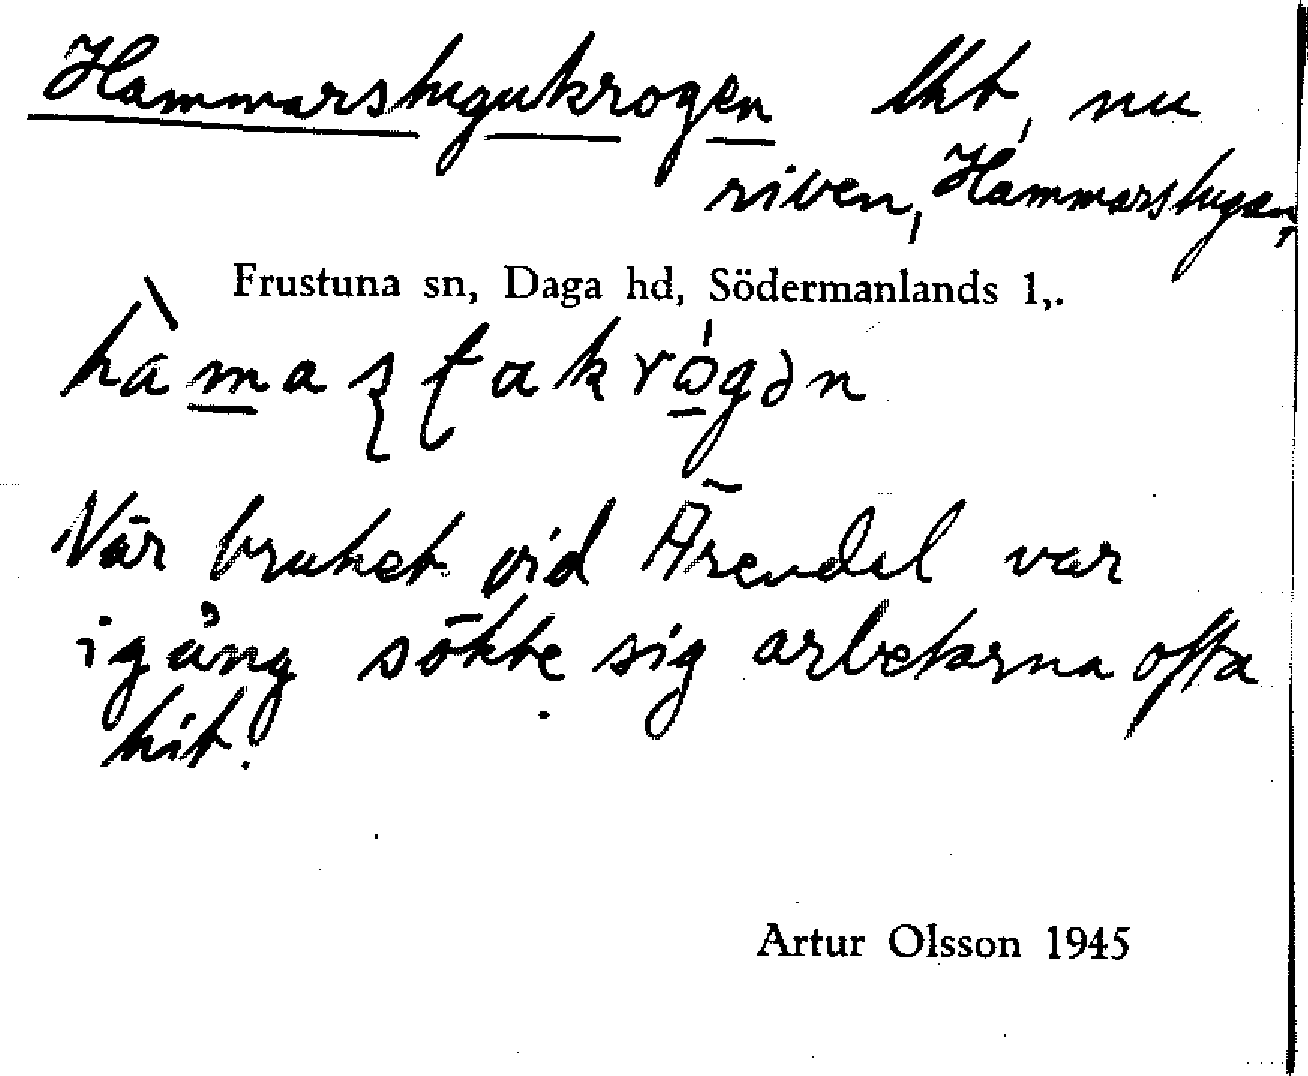 Hammarstugukrogen lht, nu
riven, Hammarstugan,
Frustuna sn, Daga hd, Södermanlands l,.
När bruket vid Ärendal var
igång sökte sig arbetarna ofta
hit.
Artur Olsson 1945